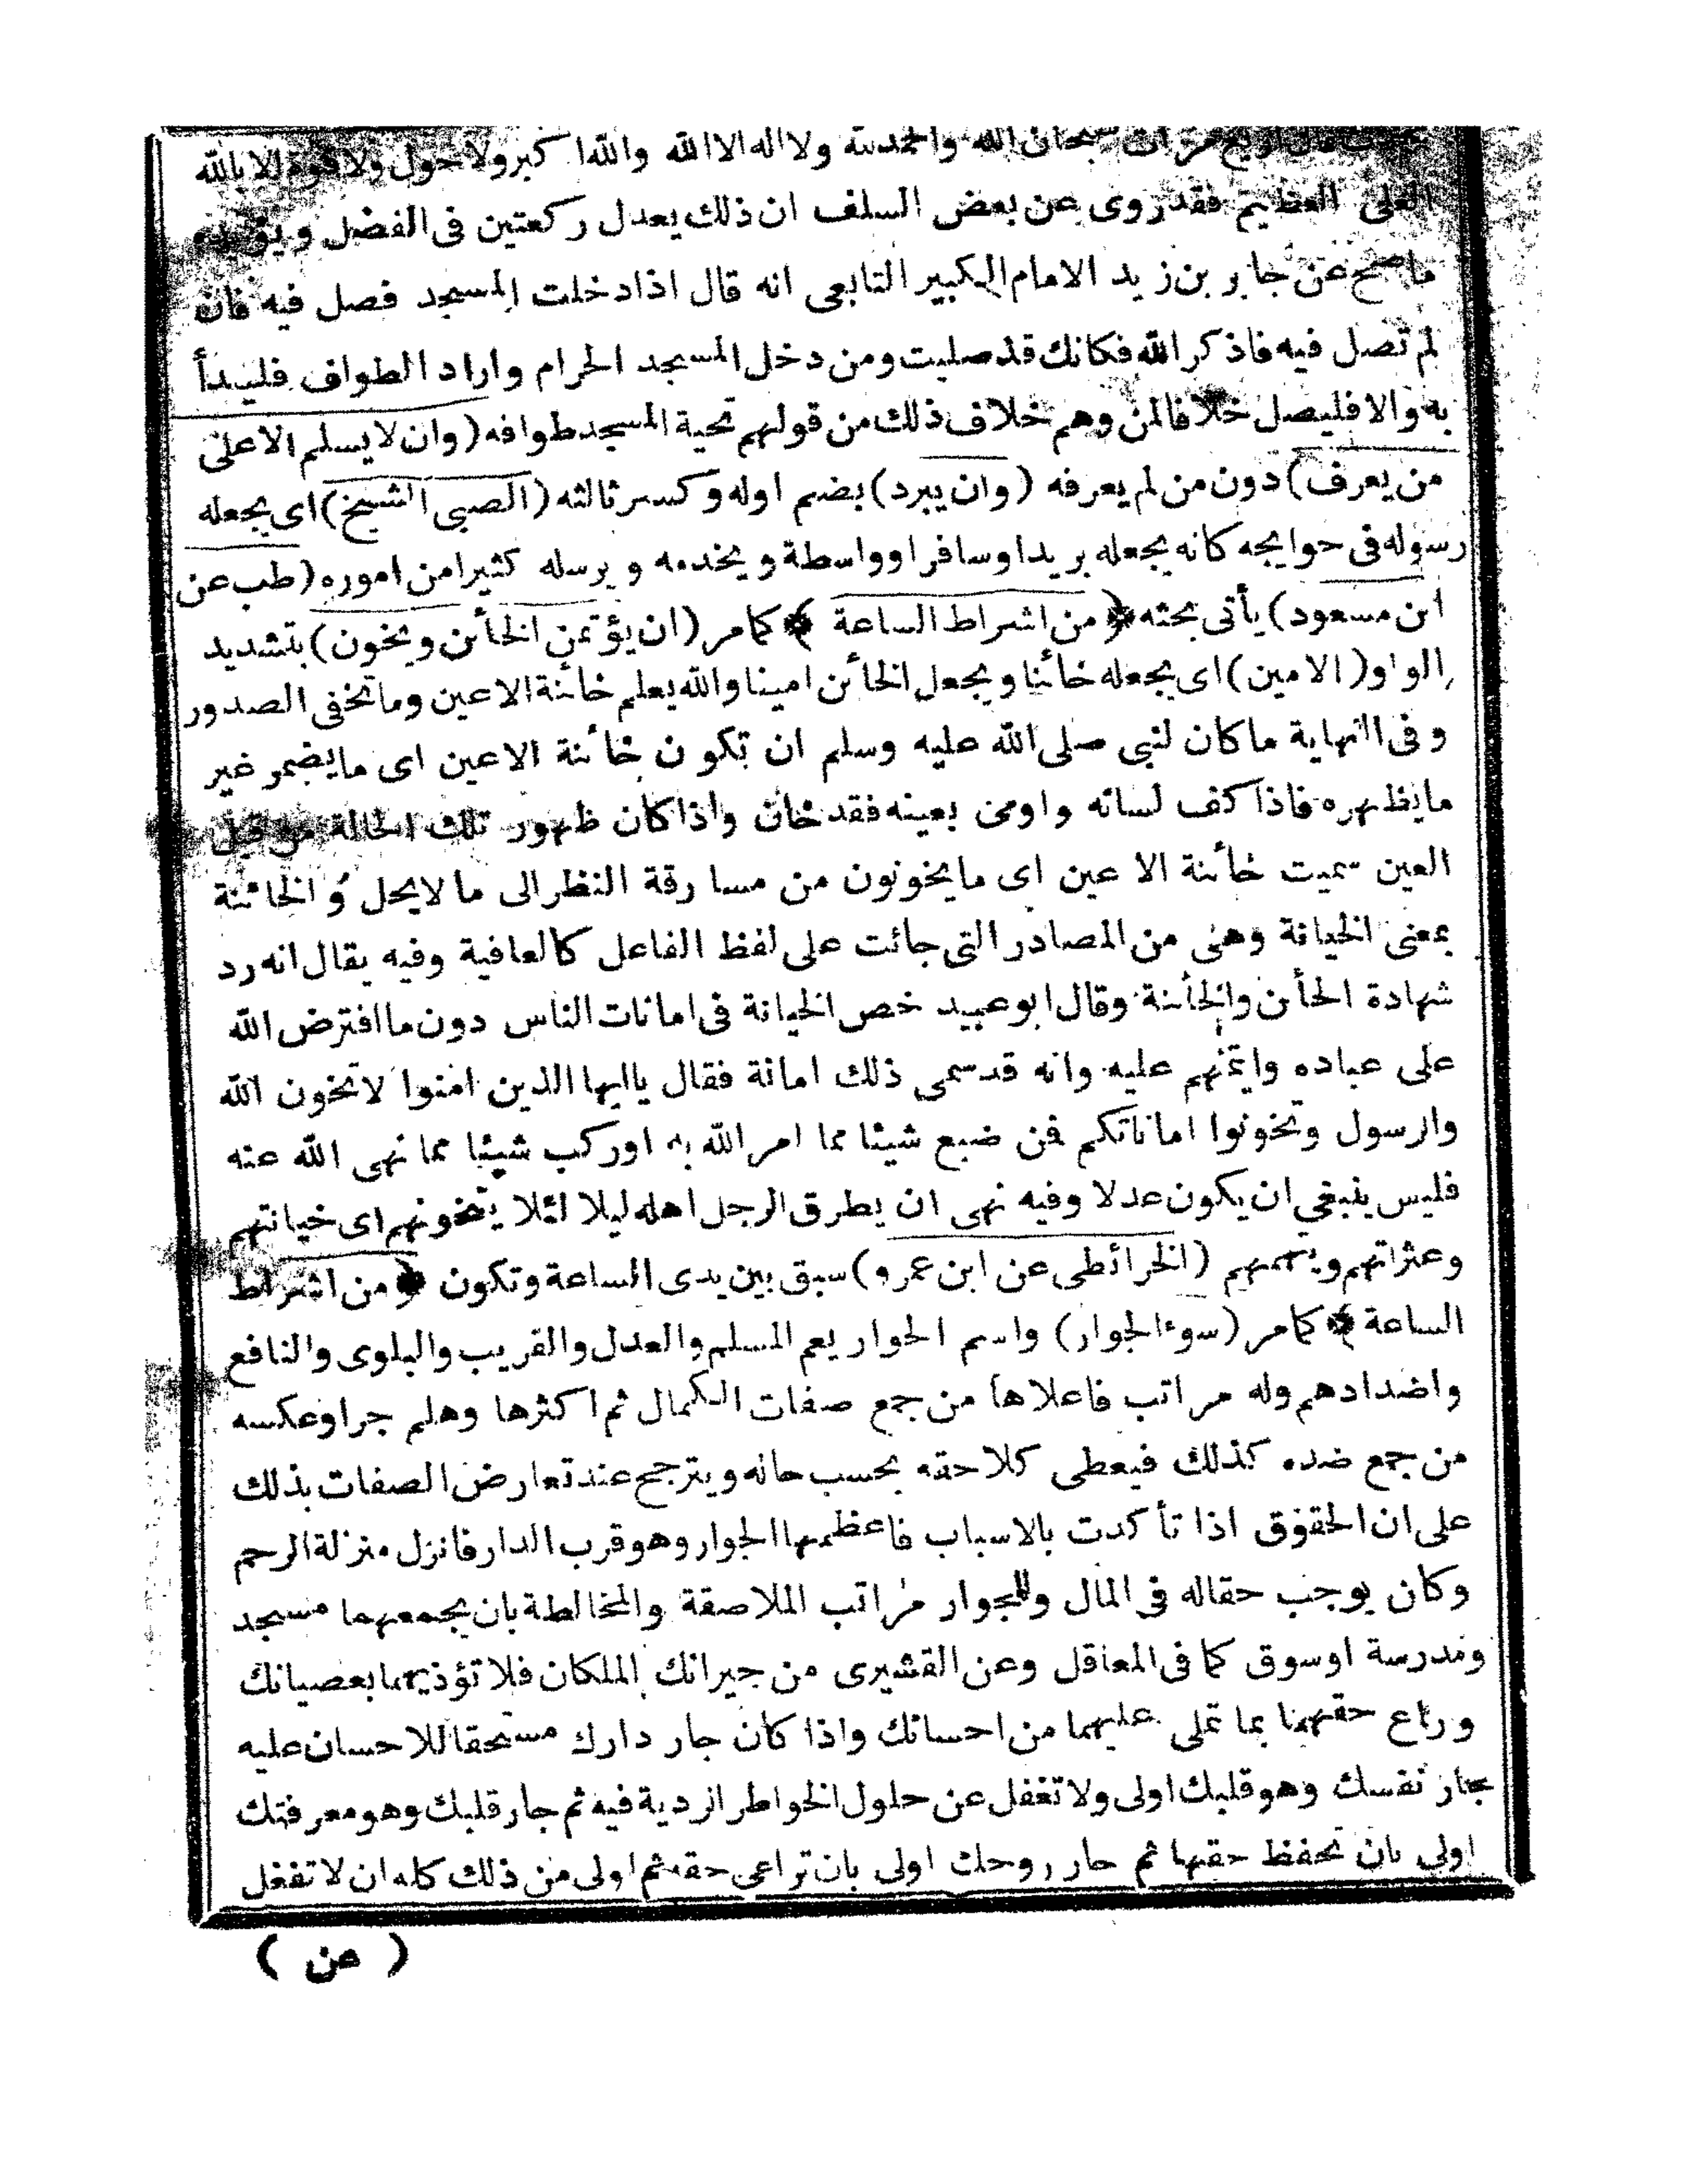 سبحان الله والحمدلله ولااله الاالله والله اكبر ولاحول ولاقوة الابالله
العلى العظيم فقدروى عن بعض السلف ان ذلك يعدل ركعتين فى الفضل ويؤيده
ماصح عن جابر بن زيد الامام الكبير التابعى انه قال اذا دخلت المسجد فصل فيه فان
لم تصل فيه فاذكر الله فكانك قدصليت ومن دخل المسجد الحرام واراد الطواف فليبدأ
به والا فليصل خلافا لمن وهم خلاف ذلك من قولهم تحية المسجد طوافه (وان لايسلم الاعلى
من يعرف) دون من لم يعرفه (وان يبرد) بضم اوله وكسر ثالثه (الصبى الشيخ) اى يجعله
رسوله فى حوايجه كانه يجعله بريدا وسافرا وواسطة ويخدمه ويرسله كثيرا من اموره (طب عن
ابن مسعود) يأتى بحثه ﴿من اشراط الساعة﴾ كمامر (ان يؤتمن الخأئن ويخون) بتشديد
الواو (الامين) اى يجعله خأئنا ويجعل الخأئن امينا والله يعلم خأئنة الاعين وماتخفى الصدور
وفى النهاية ماكان لنبى صلى الله عليه وسلم ان تكون خأئنة الاعين اى مايضمر غير
مايظهره فاذا كف لسانه واومئ بعينه فقد خان واذا كان ظهور تلك الحالة من قبل
العين سميت خأئنة الاعين اى مايخونون من مسارقة النظر الى مالايحل والخائنة
بمعنى الخيانة وهى من المصادر التى جائت على لفظ الفاعل كالعافية وفيه يقال انه رد
شهادة الخأئن والخأئنة وقال ابو عبيد خص الخيانة فى امانات الناس دون ماافترض الله
على عباده وايتمنهم عليه وانه قدسمى ذلك امانة فقال ياايها الذين امنوا لاتخون الله
والرسول وتخونوا اماناتكم فمن ضيع شيئا مما امر الله به اوركب شيئا مما نهى الله عنه
فليس ينبغي ان يكون عدلا وفيه نهى ان يطرق الرجل اهله ليلا لئلا يتخونهم اى خيانتهم
وعثراتهم ويتهمهم (الخرائطى عن ابن عمرو) سبق بين يدى الساعة وتكون ﴿من اشراط
الساعة﴾ كمامر (سوء الجوار) واسم الجوار يعم المسلم والعدل والقريب والبلوى والنافع
واضدادهم وله مراتب فاعلاها من جمع صفات الكمال ثم اكثرها وهلم جرا وعكسه
من جمع ضده كذلك فيعطى كلا حقه بحسب حاله ويترجح عند تعارض الصفات بذلك
على ان الحقوق اذا تأكدت بالاسباب فاعظمها الجوار وهو قرب الدار فانزل منزلة الرحم
وكان يوجب حقاله فى المال وللجوار مراتب الملاصقة والمخالطة بان يجمعهما مسجد
ومدرسة اوسوق كما فى المعاقل وعن القشيرى من جيرانك الملكان فلا تؤذيهما بعصيانك
وراع حقهما بما تملى عليهما من احسانك واذا كان جار دارك مستحقا للاحسان عليه
بجار نفسك وهو قلبك اولى ولاتغفل عن حلول الخواطر الردية فيه ثم جار قلبك وهو معرفتك
اولى بان تحفظ حقها ثم جار روحك اولى بان تراعى حقه ثم اولى من ذلك كله ان لاتغفل
( عن )